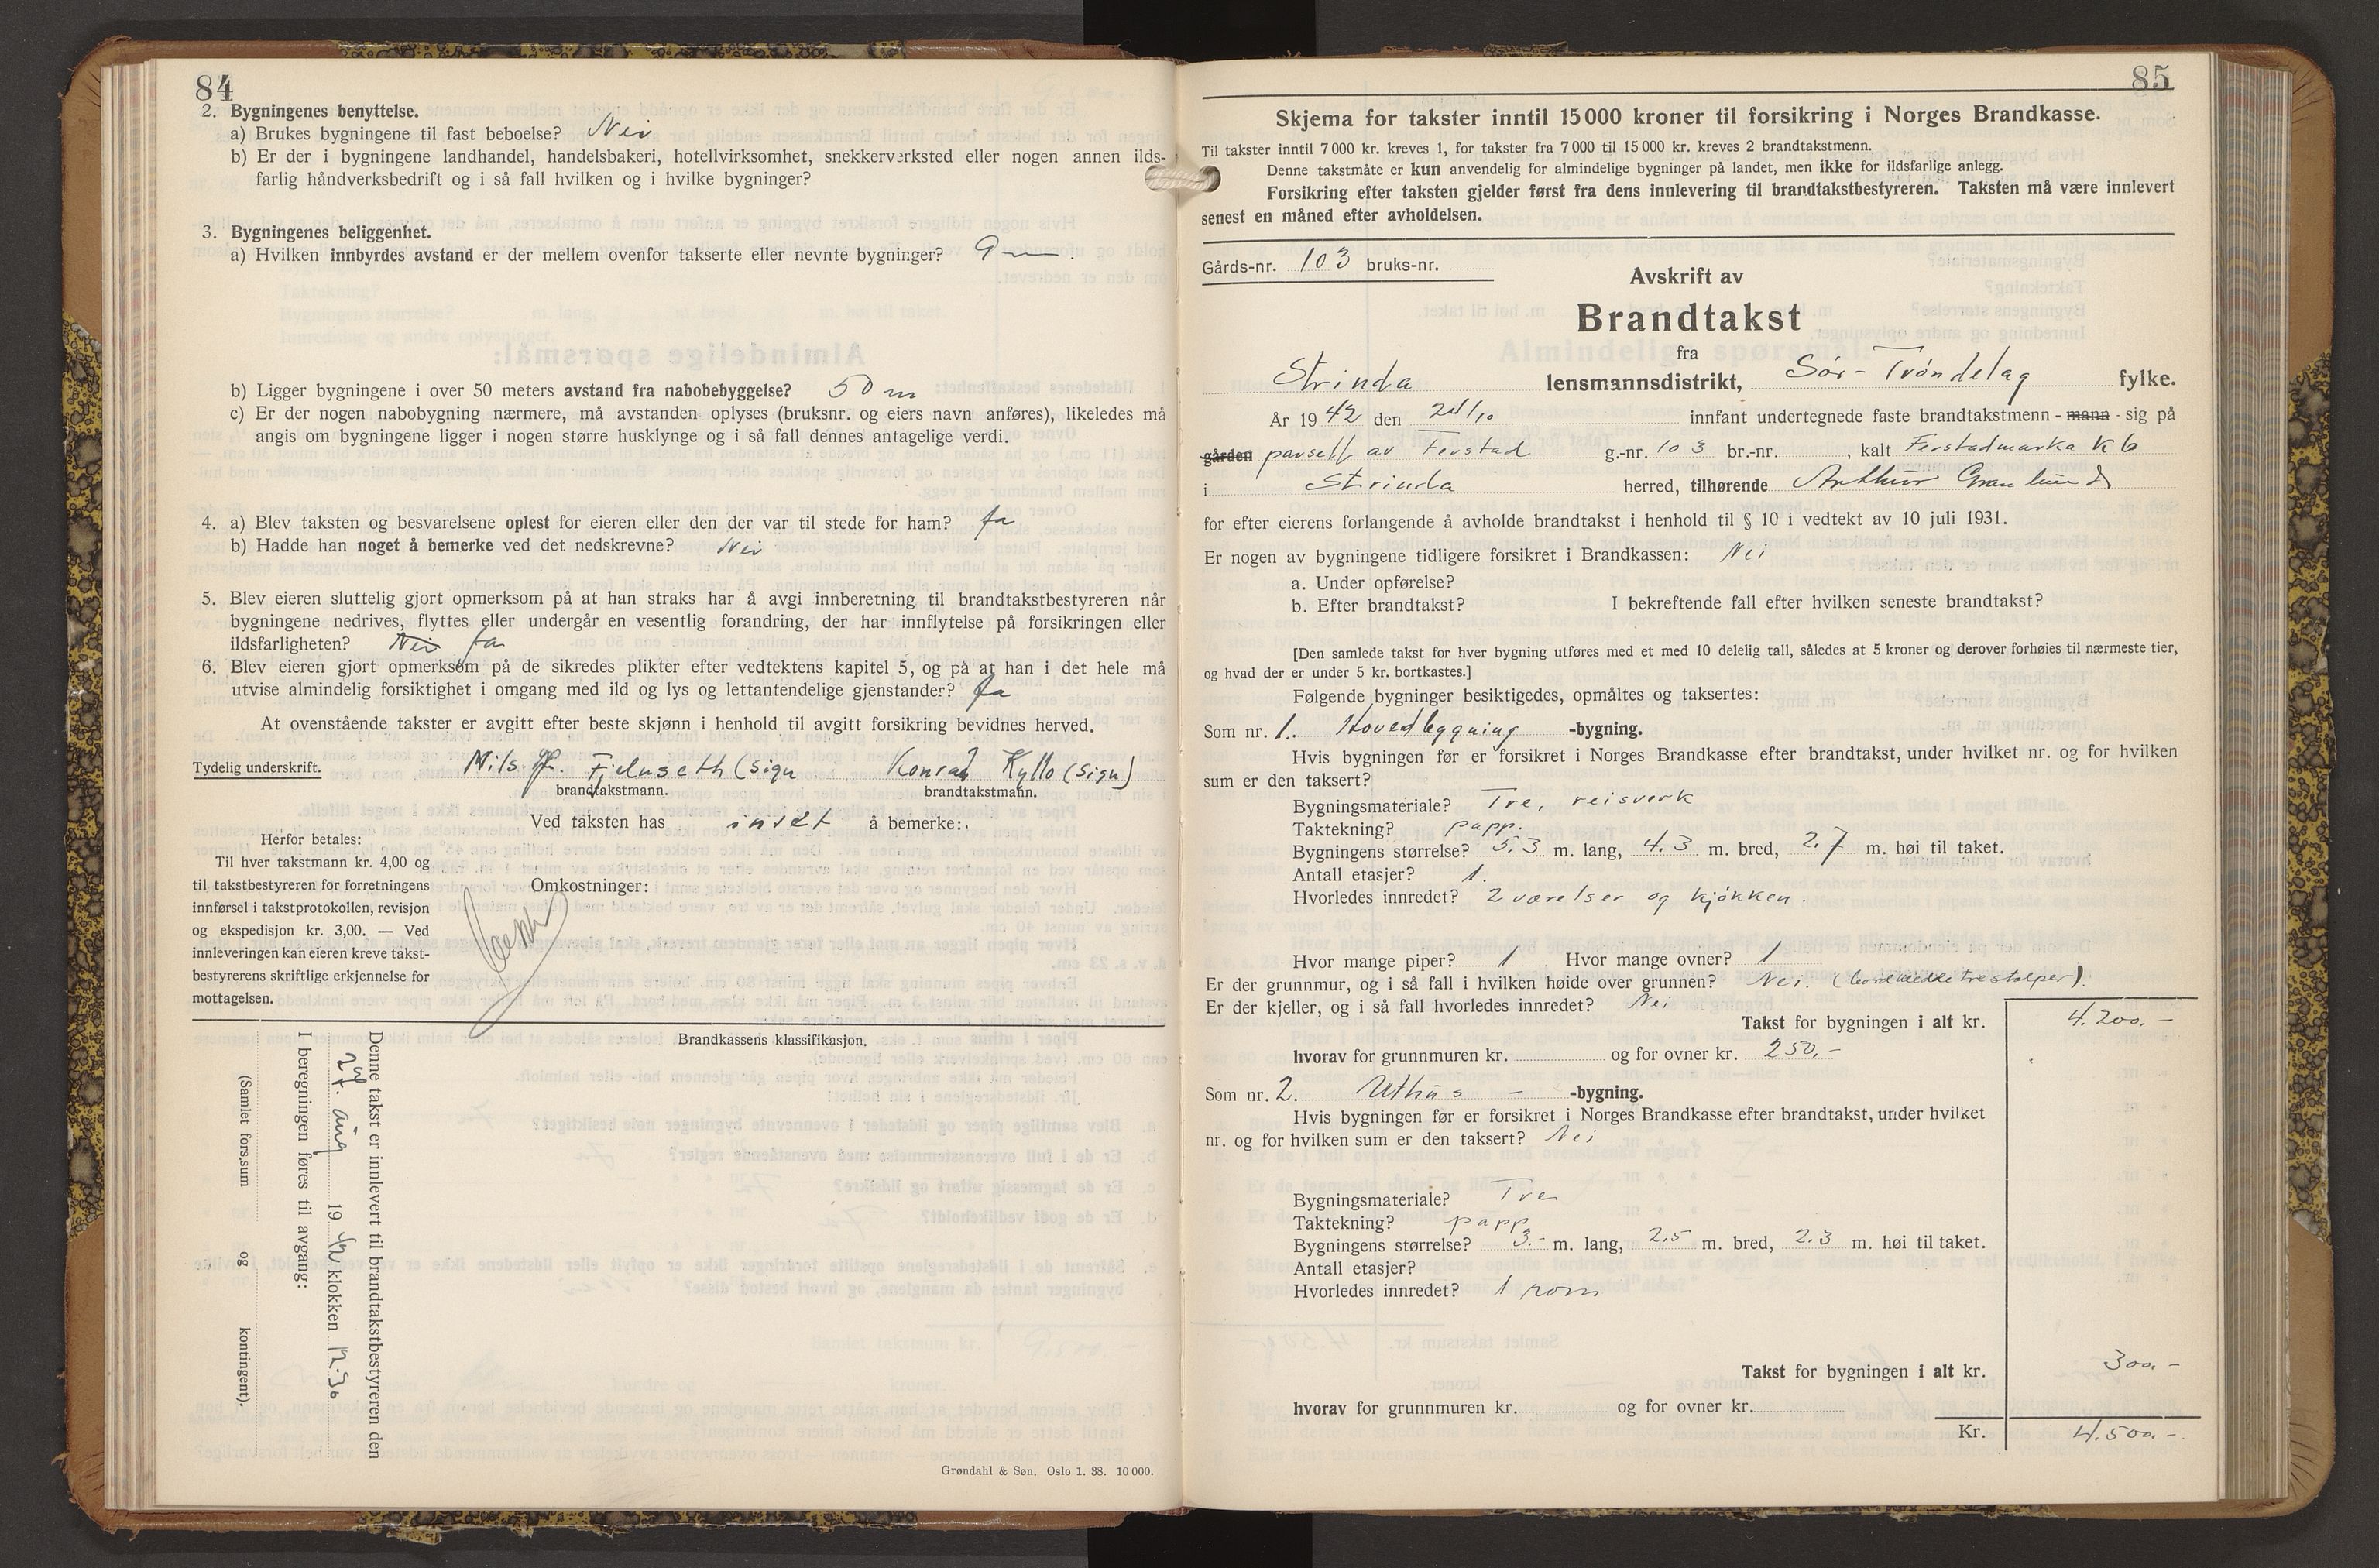 84
2. Bygningenes benyttelse.
a) Brukes bygningene til fast beboelse? Nei
b) Er der i bygningene landhandel, handelsbakeri, hotellvirksomhet, snekkerverksted eller nogen annen ilds-
farlig håndverksbedrift og i så fall hvilken og i hvilke bygninger?
3. Bygningenes beliggenhet.
a) Hvilken innbyrdes avstand er der mellem ovenfor takserte eller nevnte bygninger? 9 m.
b) Ligger bygningene i over 50 meters avstand fra nabobebyggelse? 50 m
c) Er der nogen nabobygning nærmere, må avstanden oplyses (bruksnr. og eiers navn anføres), likeledes må
angis om bygningene ligger i nogen større husklynge og i så fall dennes antagelige verdi.
4. a) Blev taksten og besvarelsene oplest for eieren eller den der var til stede for ham? Ja
b) Hadde han noget å bemerke ved det nedskrevne? Nei
5. Blev eieren sluttelig gjort opmerksom på at han straks har å avgi innberetning til brandtakstbestyreren når
bygningene nedrives, flyttes eller undergår en vesentlig forandring, der har innflytelse på forsikringen eller
ildsfarligheten? Nei Ja
6. Blev eieren gjort opmerksom på de sikredes plikter efter vedtektens kapitel 5, og på at han i det hele må
utvise almindelig forsiktighet i omgang med ild og lys og lettantendelige gjenstander? Ja
At ovenstående takster er avgitt efter beste skjønn i henhold til avgitt forsikring bevidnes herved.
Tydelig underskrift. Nils Fjelnseth (sign Konrad Kyllo (sign)
brandtakstmann. brandtakstmann.
Ved taksten has intet å bemerke:
Herfor betales:
Til hver takstmann kr. 4,00 og
til takstbestyreren for forretningens
innførsel i takstprotokollen, revisjon
og ekspedisjon kr. 3,00. — Ved
innleveringen kan eieren kreve takst-
bestyrerens skriftlige erkjennelse for
mottagelsen.
Omkostninger:
Brandkassens klassifikasjon.
Denne takst er innlevert til brandtakstbestyreren den
27. aug 1942 klokken 12.30
I beregningen føres til avgang:
(Samlet fors.sum og kontingent).
Grøndahl & Søn. Oslo 1. 38. 10 000.
85
Skjema for takster inntil 15 000 kroner til forsikring i Norges Brandkasse.
Til takster inntil 7 000 kr. kreves 1, for takster fra 7 000 til 15 000 kr. kreves 2 brandtakstmenn.
Denne takstmåte er kun anvendelig for almindelige bygninger på landet, men ikke for ildsfarlige anlegg.
Forsikring efter taksten gjelder først fra dens innlevering til brandtakstbestyreren. Taksten må være innlevert
senest en måned efter avholdelsen.
Gårds-nr. 103 bruks-nr.
Avskrift av
Brandtakst
fra
Strinda lensmannsdistrikt, Sør-Trøndelag fylke.
År 1942 den innfant undertegnede faste brandtakstmenn - mann - sig på
gården parsell av Ferstad g.-nr. 103 br.-nr. , kalt Ferstadmarka K 6
i Strinda herred, tilhørende Arthur Granlund
for efter eierens forlangende å avholde brandtakst i henhold til § 10 i vedtekt av 10 juli 1931.
Er nogen av bygningene tidligere forsikret i Brandkassen: Nei
a. Under opførelse?
b. Efter brandtakst? I bekreftende fall efter hvilken seneste brandtakst?
[Den samlede takst for hver bygning utføres med et med 10 delelig tall, således at 5 kroner og derover forhøies til nærmeste tier,
og hvad der er under 5 kr. bortkastes.]
Følgende bygninger besiktigedes, opmåltes og taksertes:
Som nr. 1. Hovedbygning -bygning.
Hvis bygningen før er forsikret i Norges Brandkasse efter brandtakst, under hvilket nr. og for hvilken
sum er den taksert?
Bygningsmateriale? Tre, reisverk
Taktekning? papp.
Bygningens størrelse? 5.3 m. lang, 4.3 m. bred, 2.7 m. høi til taket.
Antall etasjer? 1.
Hvorledes innredet? 2 værelser og kjøkken.
Hvor mange piper? 1 Hvor mange ovner? 1
Er der grunnmur, og i så fall i hvilken høide over grunnen? Nei. (bordkledde trestolper).
Er der kjeller, og i så fall hvorledes innredet? Nei
Takst for bygningen i alt kr. 4.200.-
hvorav for grunnmuren kr. og for ovner kr. 250,-
Som nr. 2. Uthus - -bygning.
Hvis bygningen før er forsikret i Norges Brandkasse efter brandtakst, under hvilket
nr. og for hvilken sum er den taksert? Nei
Bygningsmateriale? Tre
Taktekning? papp
Bygningens størrelse? 3.- m. lang, 2.5 m. bred, 2.3 m. høi til taket.
Antall etasjer?
Hvorledes innredet? 1 rom
Takst for bygningen i alt kr. 300.-
hvorav for grunnmuren kr. og for ovner kr.
Kr. 4.500.-